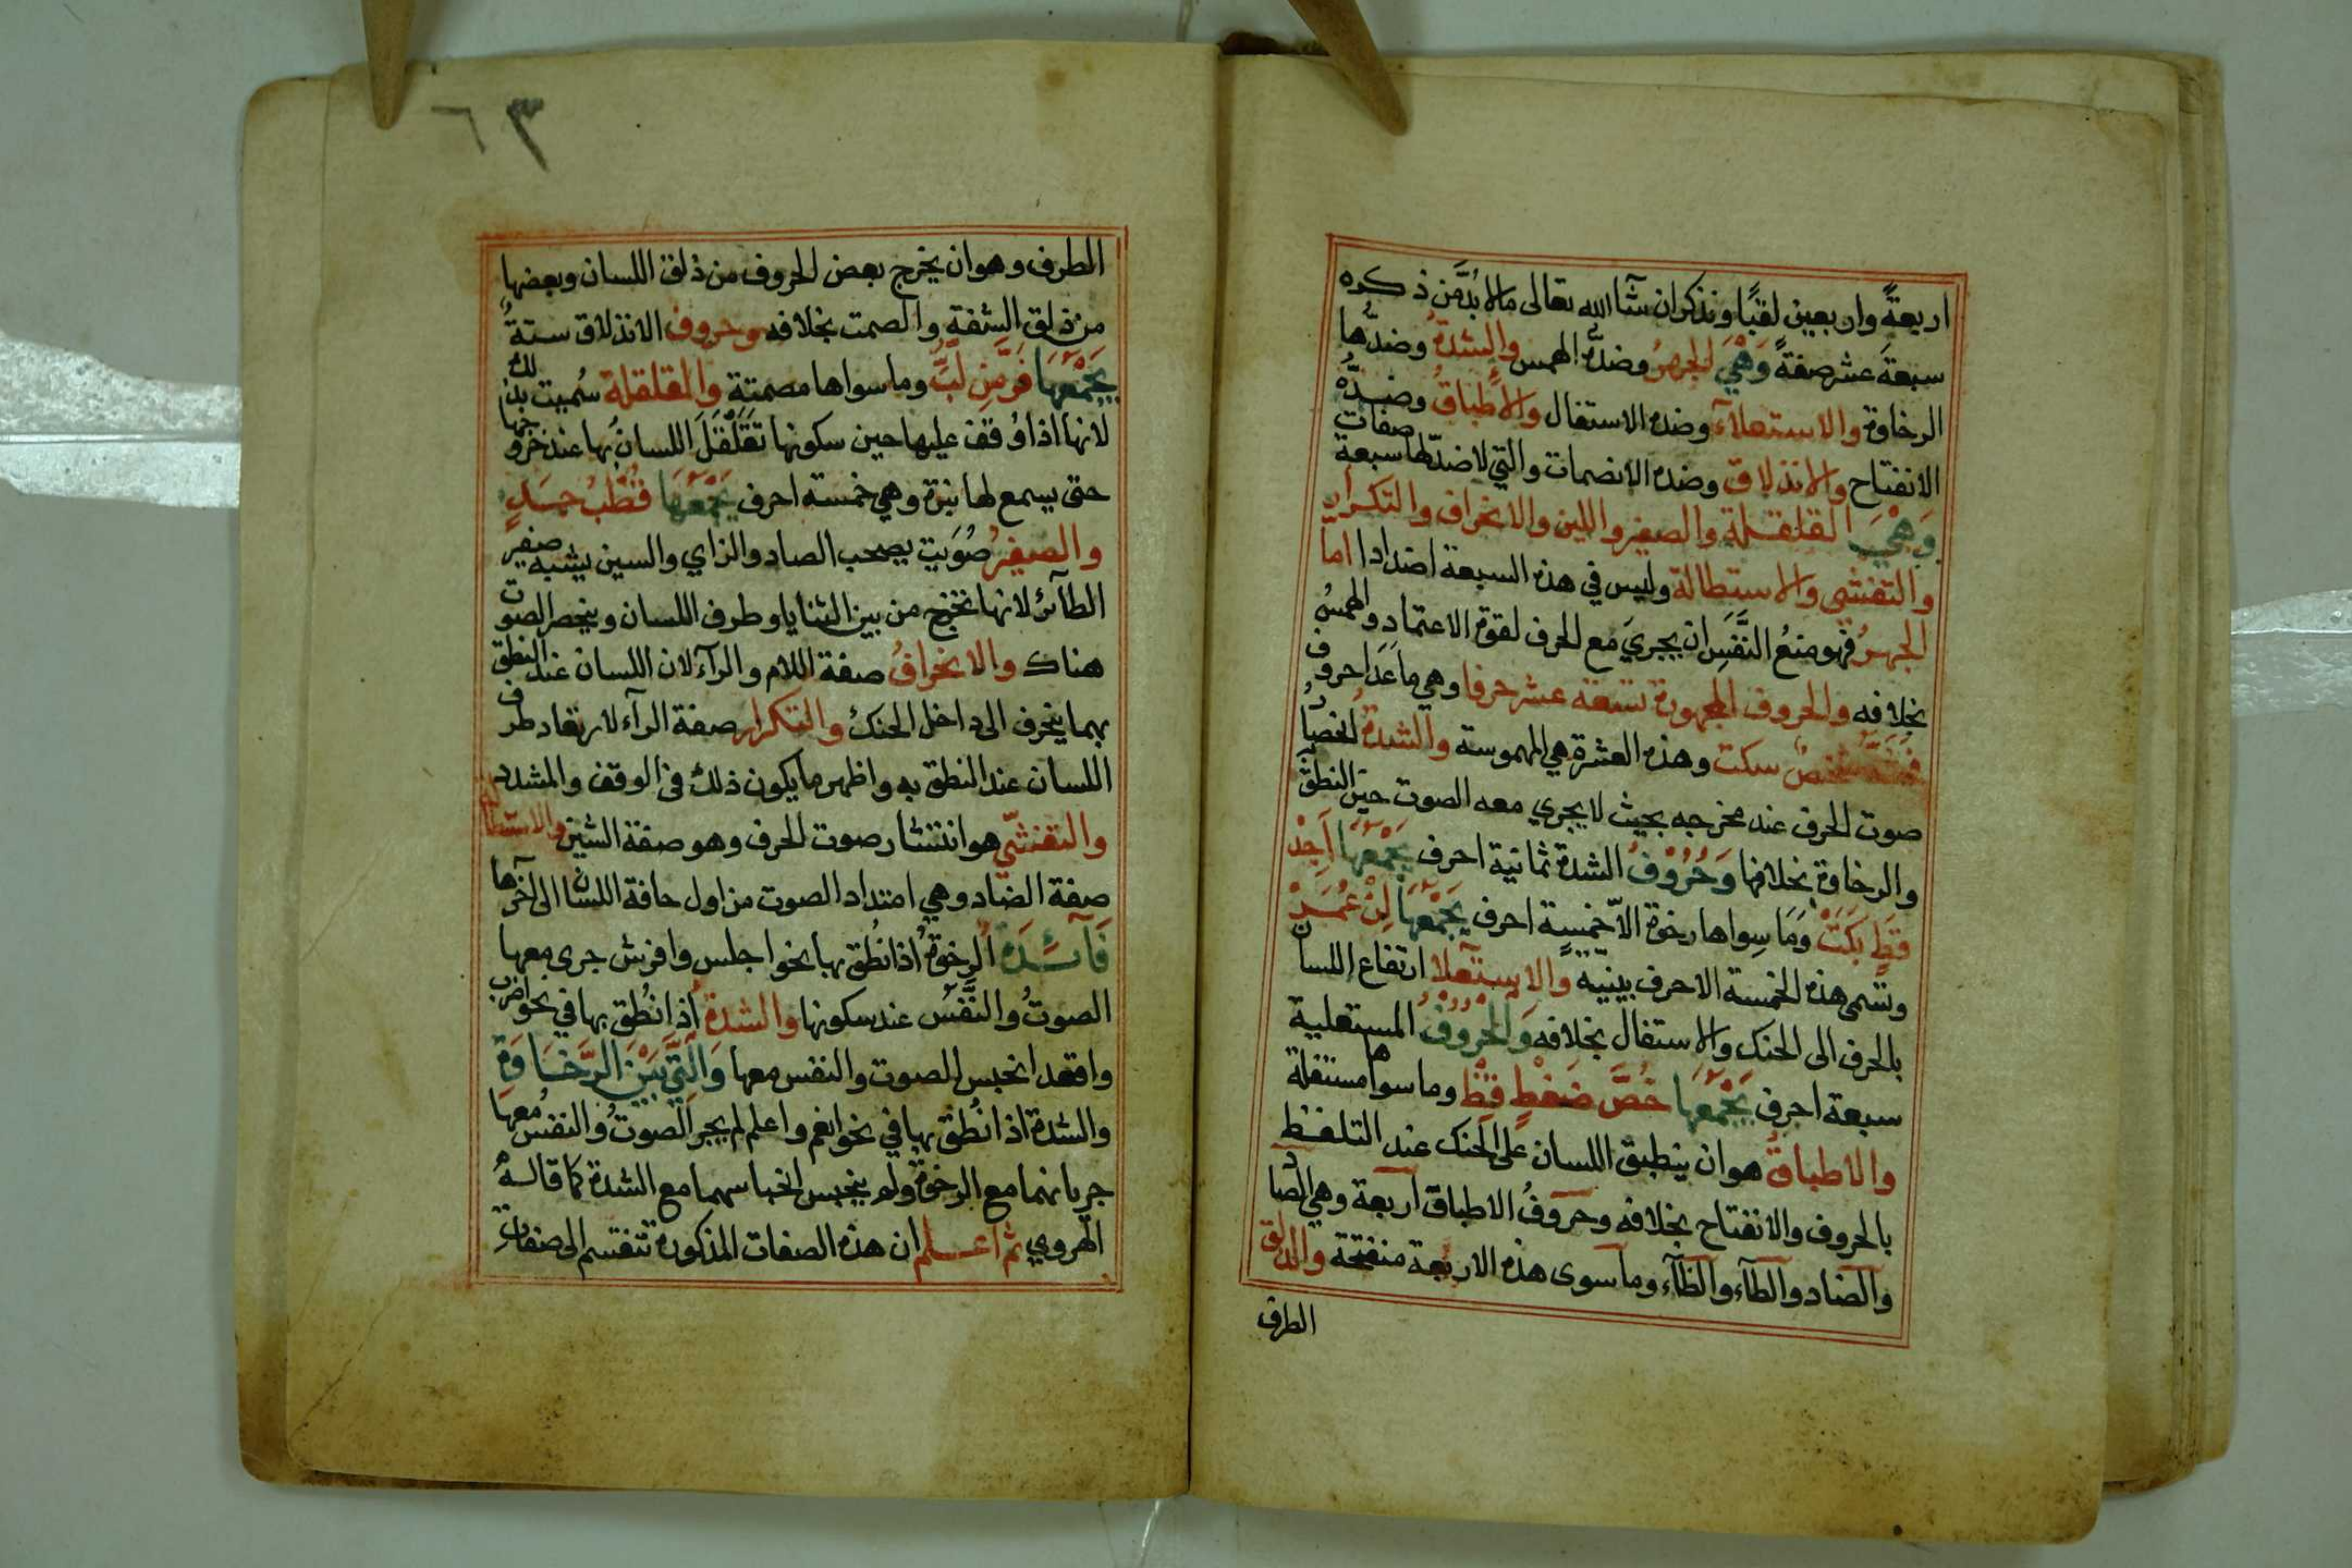 اربعةً واربعين لقبًا ونذكر ان شآ الله تعالى ما لا بُدَّ من ذكره
سبعةَ عشر صفةً وَهْيَ الجهرُ وضدُّه الهمس والشدةُ وضدُّها
الرخاوة والاستعلآء وضده الاستفال والاطباقُ وضدُّه
الانفتاح والانذلاق وضده الانصمات والتي لا ضدّ لها سبعة صفات
وَهْيَ القلقلة والصفير واللين والانحراف والتكرار
والتفشي والاستطالة وليس في هذه السبعة اضدادا اما
الجهرُ فهو منعُ النَّفَسِ ان يجريَ مع الحرف لقوة الاعتماد والهمسُ
بخلافه والحروف المجهورة تسعة عشر حرفا وهي ما عَدَا حروف
فحثه شخصٌ سكت وهذه العشرة هي المهموسة والشدةُ انحصارُ
صوت الحرف عند مخرجه بحيث لا يجري معه الصوت حين النطق
والرخاوة بخلافها وَحُرُوْفُ الشدة ثمانية احرف يَجْمَعُهَا اَجِدْ
قَطٍ بَكَتْ وَمَا سِواها رخوة الّا خمسة احرف يَجْمَعُهَا لِنْ عُمَرْ
وتسمى هذه الخمسة الاحرف بينيّة والاستعلا ارتفاع اللسان
بالحرف الى الحنك والاستفال بخلافه وَالْحُرُوْفُ المستعلية
سبعة احرف يَجْمَعُهَا خُصَّ ضَغْطٍ قِظْ وما سواها مستفلة
والاطباقُ هو ان ينطبق اللسان على الحنك عند التلفظ
بالحروف والانفتاح بخلافه وحروفُ الاطباق اربعة وهي الصاد
والضاد والطآء والظآء وما سوى هذه الاربعة منفتحة والذلق
الطرف
٦٣
الطرف وهو ان يخرج بعض الحروف من ذلق اللسان وبعضها
من ذلق الشفة والصمت بخلافه وحروف الانذلاق ستةٌ
يَجْمَعُهَا فَرَّ مِن لُّبٍّ وما سواها مصمتة والقلقلة سُميت بذلك
لانها اذا وُقف عليها حين سكونها تَقَلْقَلَ اللسانُ بها عند خروجها
حتى يسمع لها نبرة وهي خمسة احرف يَجْمَعُهَا قُطْبُ جَدٍ
والصفيرُ صُوَيت يصحب الصاد والزاي والسين يشبه صفير
الطآئر لانها تخرج من بين الثنايا وطرف اللسان وينحصر الصوت
هناك والانحرافُ صفة اللام والرآء لان اللسان عند النطق
بهما ينحرف الى داخل الحنك والتكرار صفة الرآء لارتعاد طرف
اللسان عند النطق به واظهر ما يكون ذلك في الوقف والمشدد
والتفشّي هو انتشار صوت الحرف وهو صفة الشين والاستطالة
صفة الضاد وهي امتداد الصوت من اول حافة اللسان الى آخرها
الرخوةُ اذا نُطق بها نحو اجلس وافرش جرى معها
الصوتُ والنَّفَسُ عند سكونها والشدةُ اذا نُطق بها في نحو اضرب
واقعد انحبس الصوت والنفس معها وَالَّتِي بَيْنَ الرَّخَاوَةِ
والشدة اذا نُطق بها في نحو انعم واعلم لم يجر الصوتُ والنفسُ معها
جريانهما مع الرخوة ولم ينحبس انحباسهما مع الشدة كما قالهُ
الهروي ثم اعلم ان هذه الصفات المذكورة تنقسم الى صفات